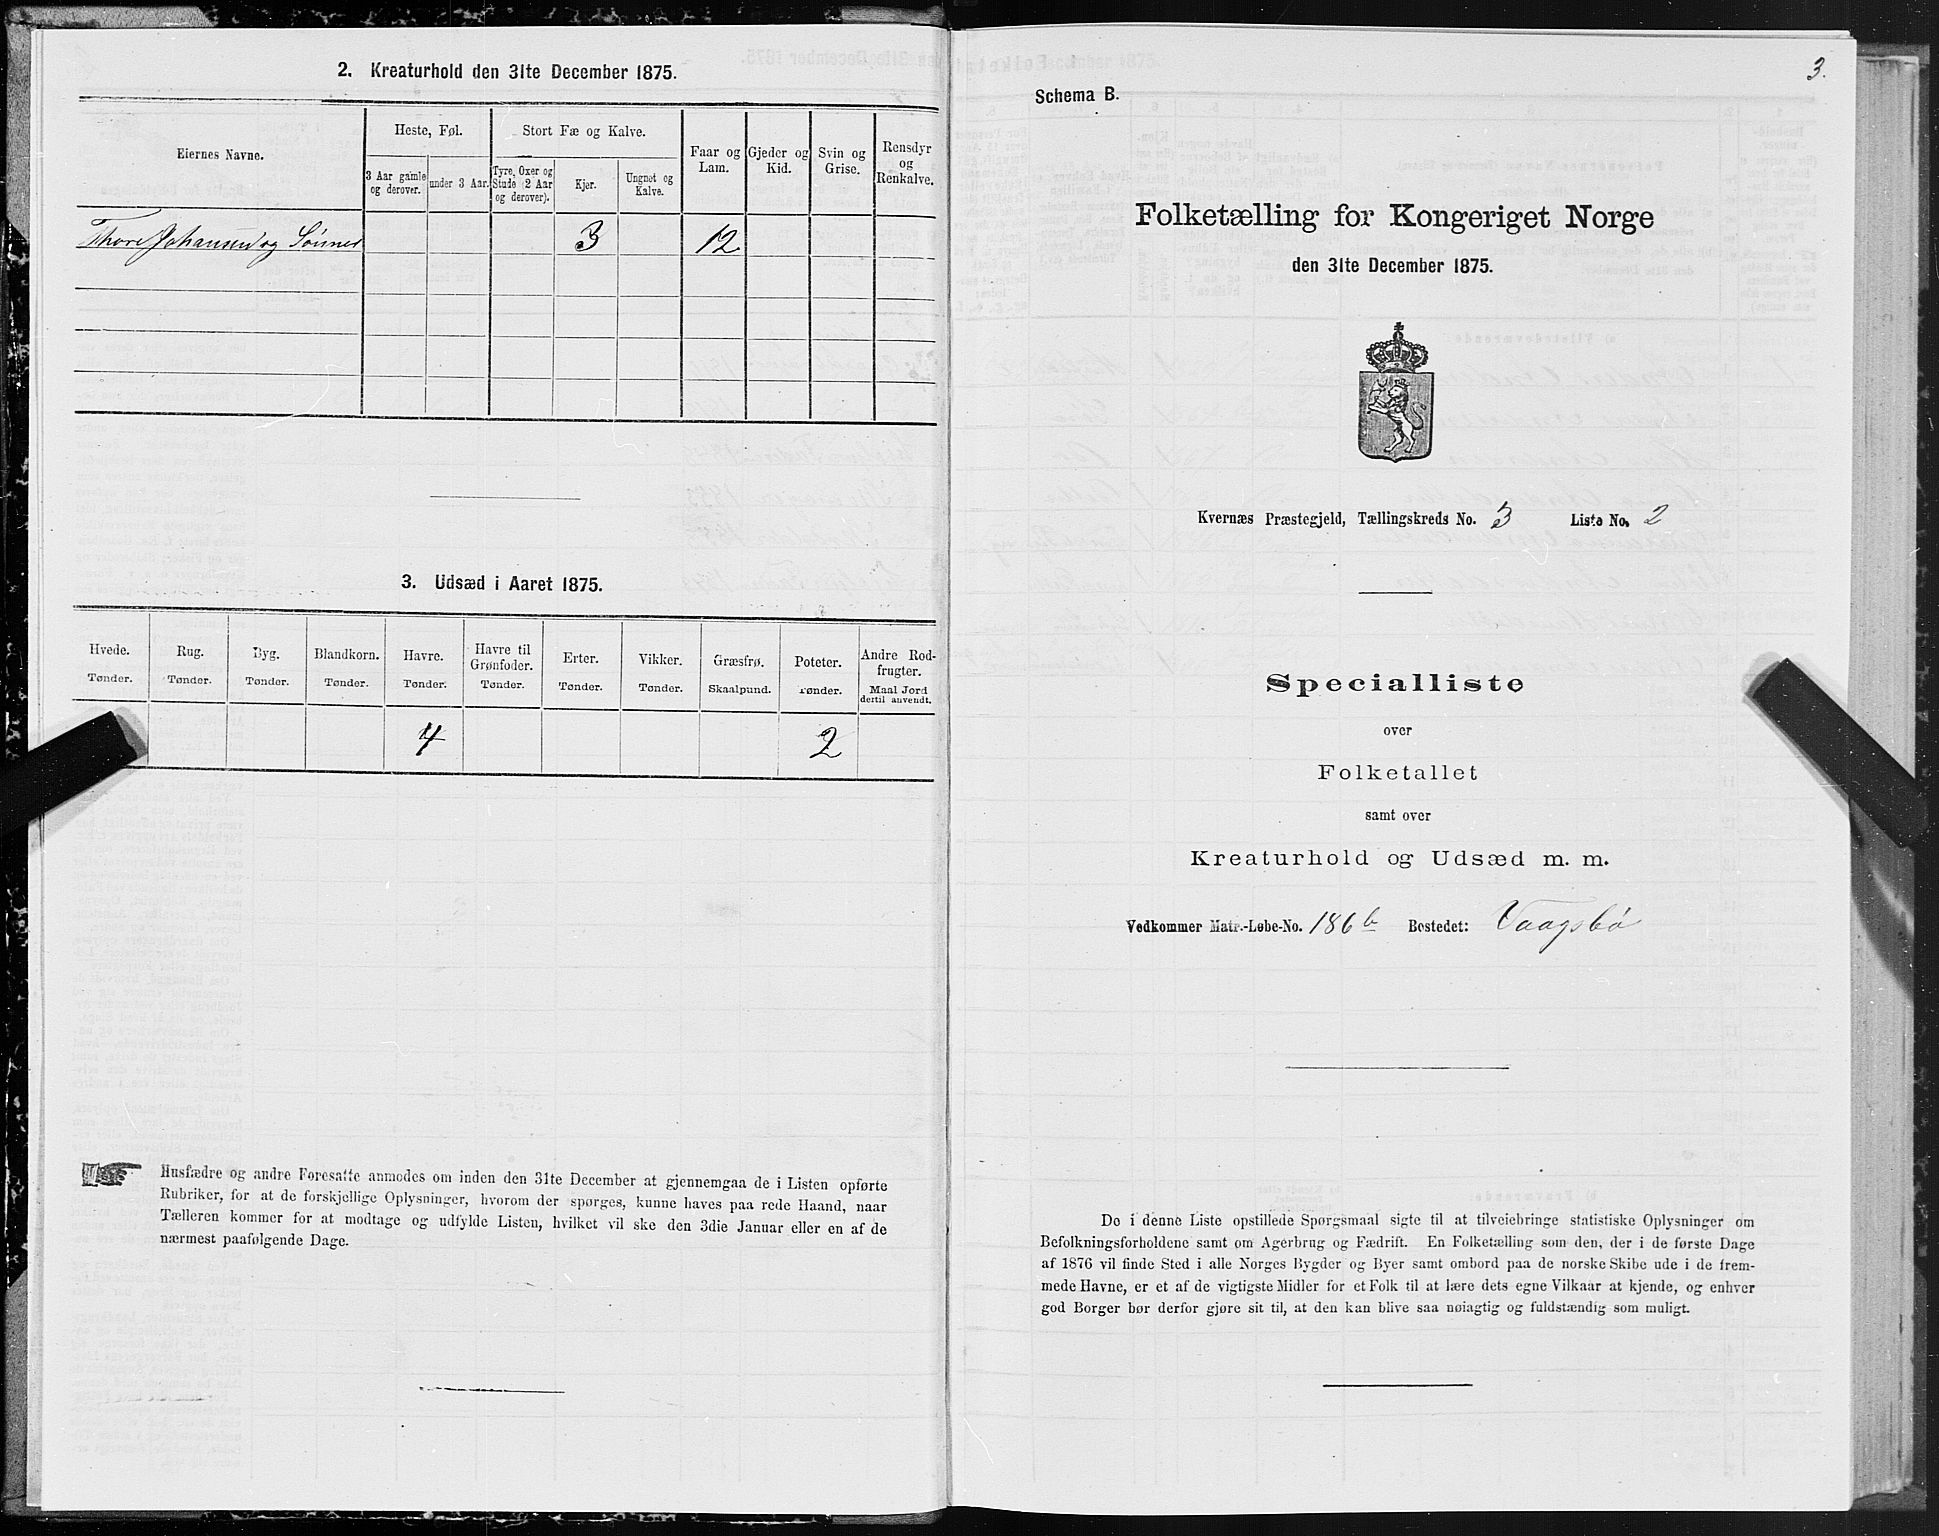 2. Kreaturhold den 31te December 1875.
Eiernes Navne.
Heste, Føl.
Stort Fæ og Kalve.
Faar og Lam.
Gjeder og Kid.
Svin og Grise.
Rensdyr og Renkalve.
3 Aar gamle og derover.
under 3 Aar.
Tyre, Oxer og Stude (2 Aar og derover).
Kjør.
Ungnøt og Kalve.
Thore Johansen og Sønner 3 12
3. Udsæd i Aaret 1875.
Hvede. Rug. Byg. Blandkorn. Havre. Havre til Grønfoder. Erter. Vikker. Græsfrø. Poteter. Andre Rodfrugter.
Tønder. Tønder. Tønder. Tønder. Tønder. Tønder. Tønder. Tønder. Skaalpund. Tønder. Maal Jord dertil anvendt.
4 2
Husfædre og andre Foresatte anmodes om inden den 31te December at gjennemgaa de i Listen opførte
Rubriker, for at de forskjellige Oplysninger, hvorom der spørges, kunne haves paa rede Haand, naar
Tælleren kommer for at modtage og udfylde Listen, hvilket vil ske den 3die Januar eller en af de
nærmest paafølgende Dage.
3.
Schema B.
Folketælling for Kongeriget Norge
den 31te December 1875.
Kvernæs Præstegjeld, Tællingskreds No. 3 Liste No. 2
Specialliste
over
Folketallet
samt over
Kreaturhold og Udsæd m. m.
Vedkommer Matr.-Løbe-No. 186 b Bostedet: Vaagsbø
De i denne Liste opstillede Spørgsmaal sigte til at tilveiebringe statistiske Oplysninger om
Befolkningsforholdene samt om Agerbrug og Fædrift. En Folketælling som den, der i de første Dage
af 1876 vil finde Sted i alle Norges Bygder og Byer samt ombord paa de norske Skibe ude i de frem-
mede Havne, er et af de vigtigste Midler for et Folk til at lære dets egne Vilkaar at kjende, og enhver
god Borger bør derfor gjøre sit til, at den kan blive saa nøiagtig og fuldstændig som muligt.